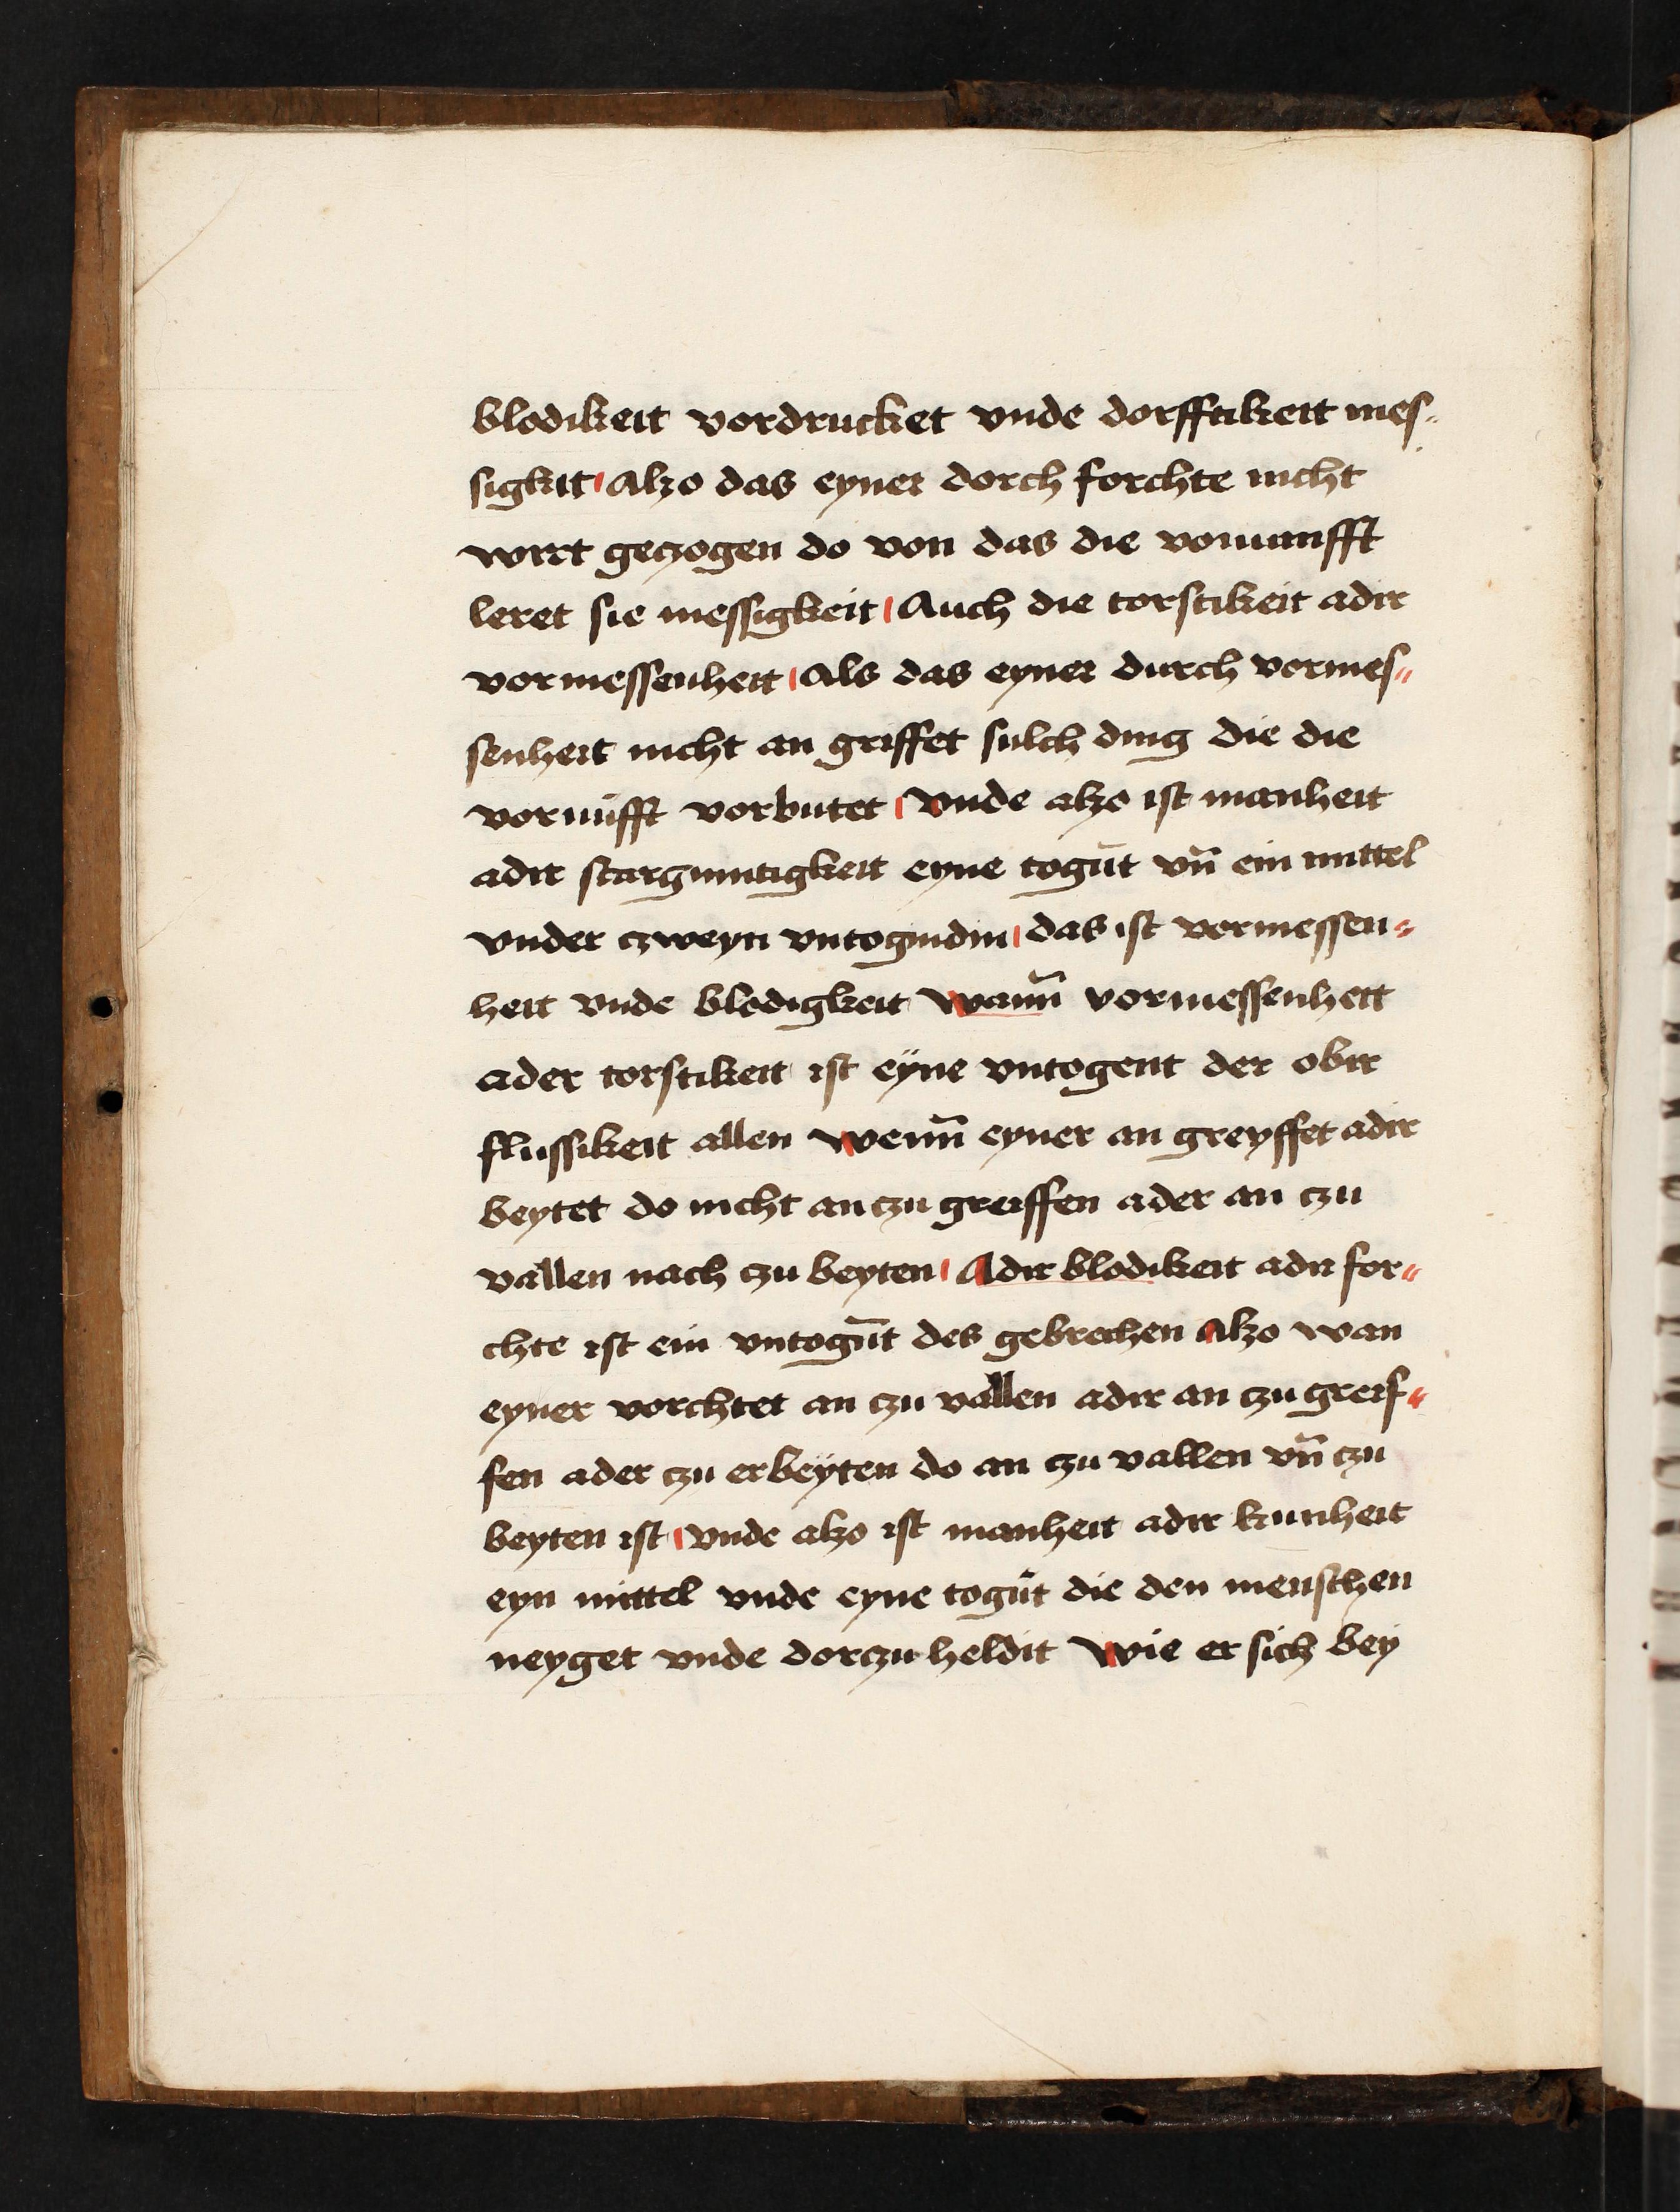 blodikeit vordrucket vnde dorfftikeit mes⸗
sigkit Alzo das eyner dorch forchte nicht
wirt geczogen do von das die vornunfft
leret sie messigkeit Auch die torstikeit adir
vormessenheit Als das eyner durch vormes⸗
senheit nicht an griffet sulch ding die die
vornūfft vorbutet Vnde alzo ist manheit
adir stargmutigkeit eyne togūt vn̄ ein mittel
vnder czweyn vntogindin das ist vormessen⸗
heit vnde blodigkeit Wann̄ vormessenheit
ader torstikeit ist eyne vntogent der obir
flussikeit allen Wenn̄ eyner an greyffet adir
beytet do nicht an czu greiffen ader an czu
vallen nach czu beyten Adir blodikeit adir for⸗
chte ist ein vntogūt des gebrechen Alzo wan
eyner vorchtet an czu vallen adir an czu greif⸗
fen ader czu erbeyten do an czu vallen vn̄ czu
beyten ist Vnde alzo ist manheit adir kunheit
eyn mittel vnde eyne togūt die den menschen
neyget vnde dorczu heldit Wie er sich bey